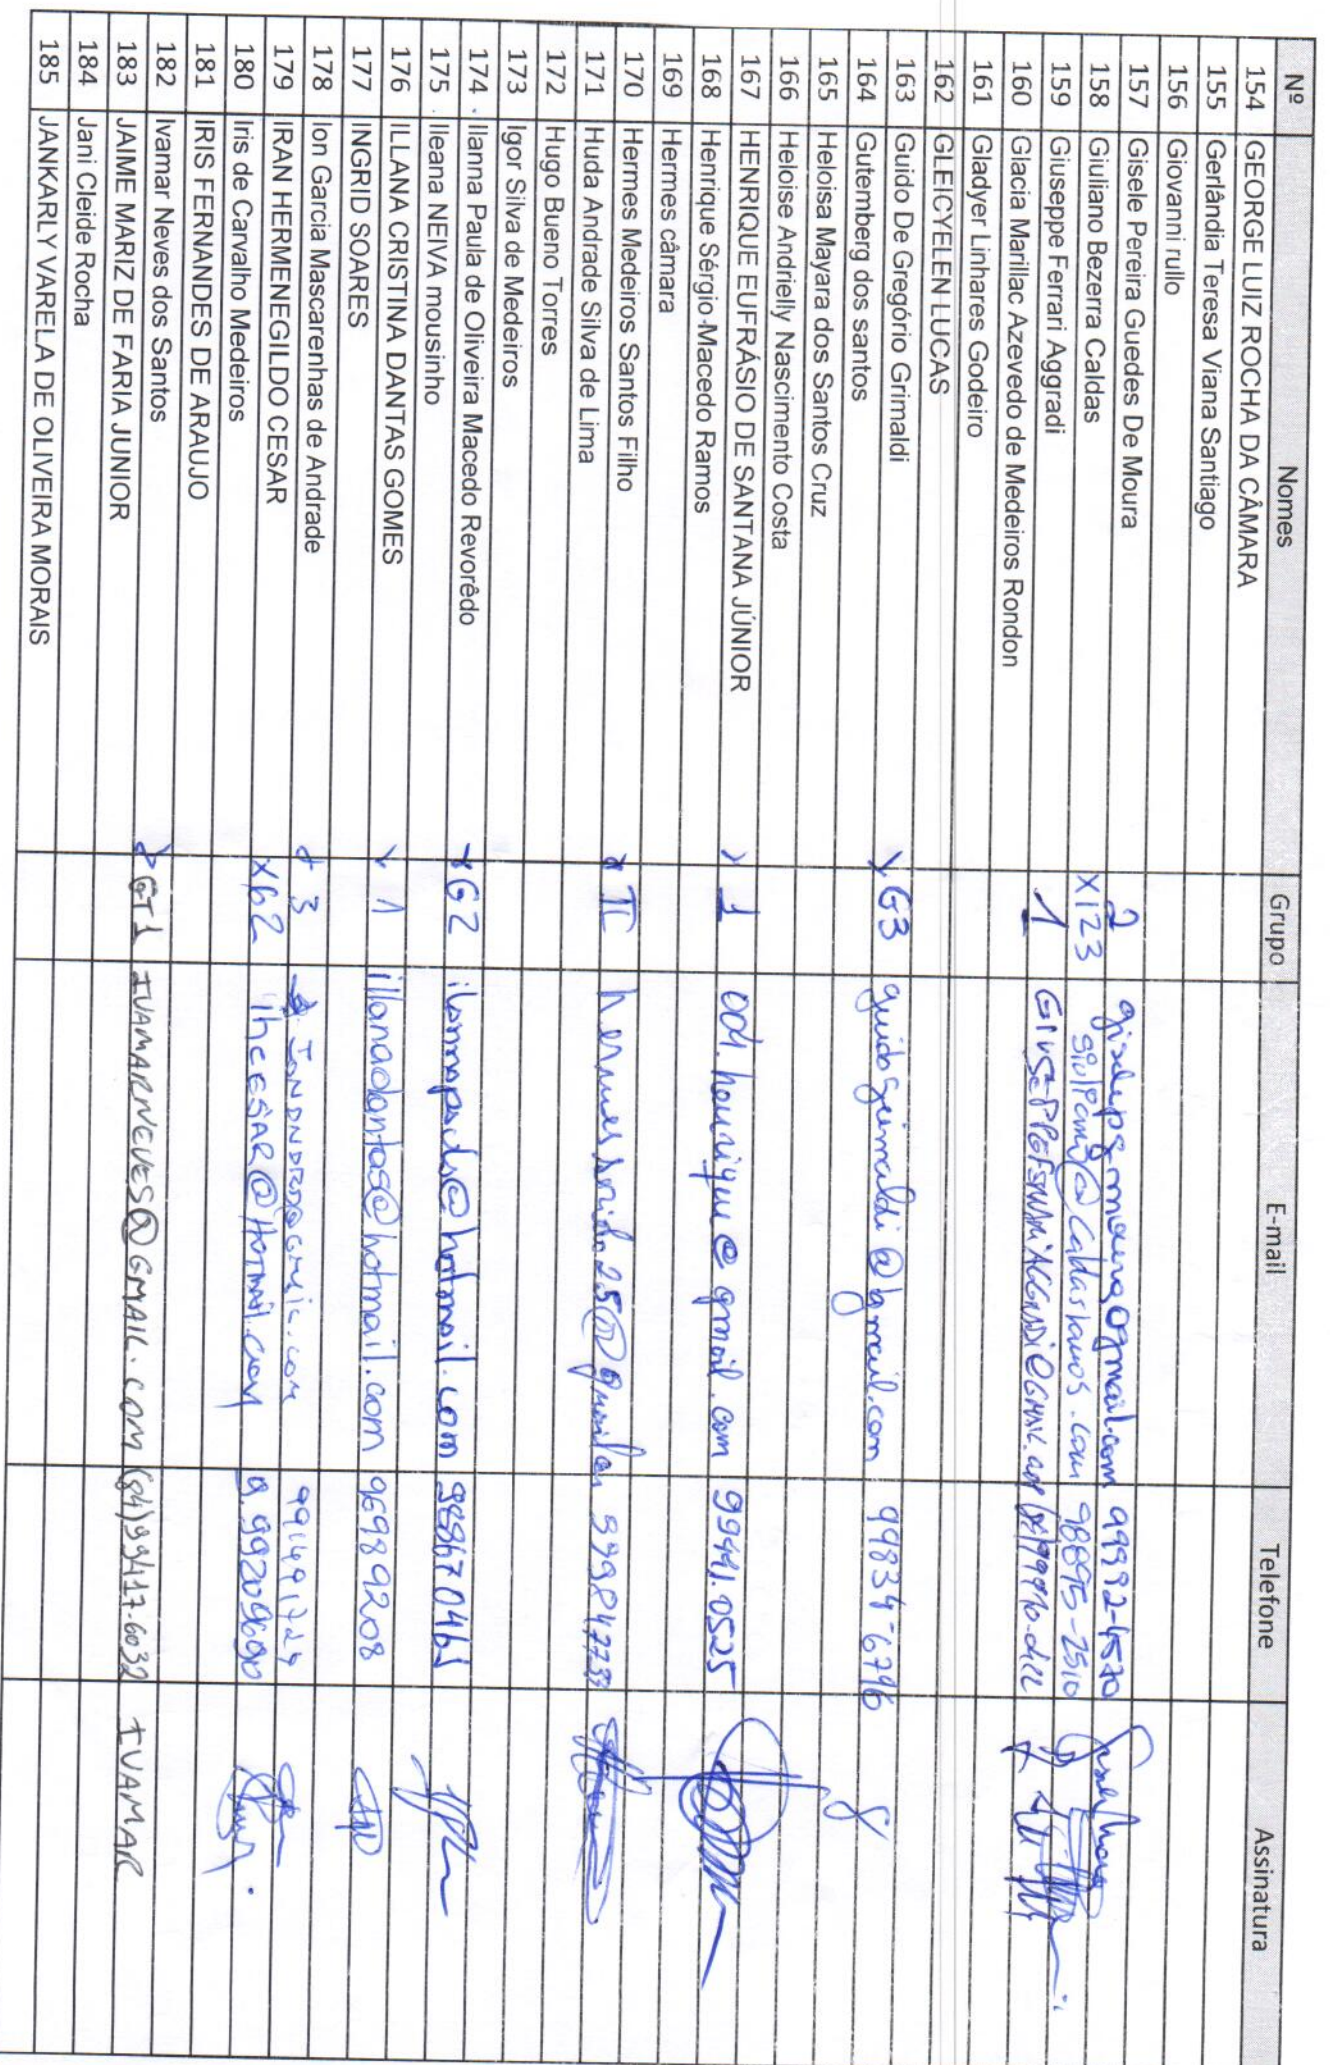 Nº Nomes Grupo E-mail Telefone Assinatura
154 GEORGE LUIZ ROCHA DA CÂMARA
155 Gerlândia Teresa Viana Santiago
156 Giovanni rullo
157 Gisele Pereira Guedes De Moura 2 giselepgmoura@gmail.com 99992-4570
158 Giuliano Bezerra Caldas X123 98895-2510
159 Giuseppe Ferrari Aggradi 1
160 Glacia Marillac Azevedo de Medeiros Rondon
161 Gladyer Linhares Godeiro
162 GLEICYELEN LUCAS
163 Guido De Gregório Grimaldi G3 guidogrimaldi@gmail.com 99834-6796
164 Gutemberg dos santos
165 Heloisa Mayara dos Santos Cruz
166 Heloise Andrielly Nascimento Costa
167 HENRIQUE EUFRÁSIO DE SANTANA JÚNIOR 1 adv.henrique@gmail.com 99441.0525
168 Henrique Sérgio Macedo Ramos
169 Hermes câmara
170 Hermes Medeiros Santos Filho
171 Huda Andrade Silva de Lima
172 Hugo Bueno Torres
173 Igor Silva de Medeiros
174 Ilanna Paula de Oliveira Macedo Revorêdo G2 ilannapaula@hotmail.com 988670461
175 Ileana NEIVA mousinho
176 ILLANA CRISTINA DANTAS GOMES 1 illanadantas@hotmail.com 96989208
177 INGRID SOARES
178 Ion Garcia Mascarenhas de Andrade 3 991491724
179 IRAN HERMENEGILDO CESAR XG2 ihcESAR@HOTMAIL.com 9.99209690
180 Iris de Carvalho Medeiros
181 IRIS FERNANDES DE ARAUJO
182 Ivamar Neves dos Santos GT1 IVAMARNEVES@GMAIL.COM (84)99417.6032 IVAMAR
183 JAIME MARIZ DE FARIA JUNIOR
184 Jani Cleide Rocha
185 JANKARLY VARELA DE OLIVEIRA MORAIS